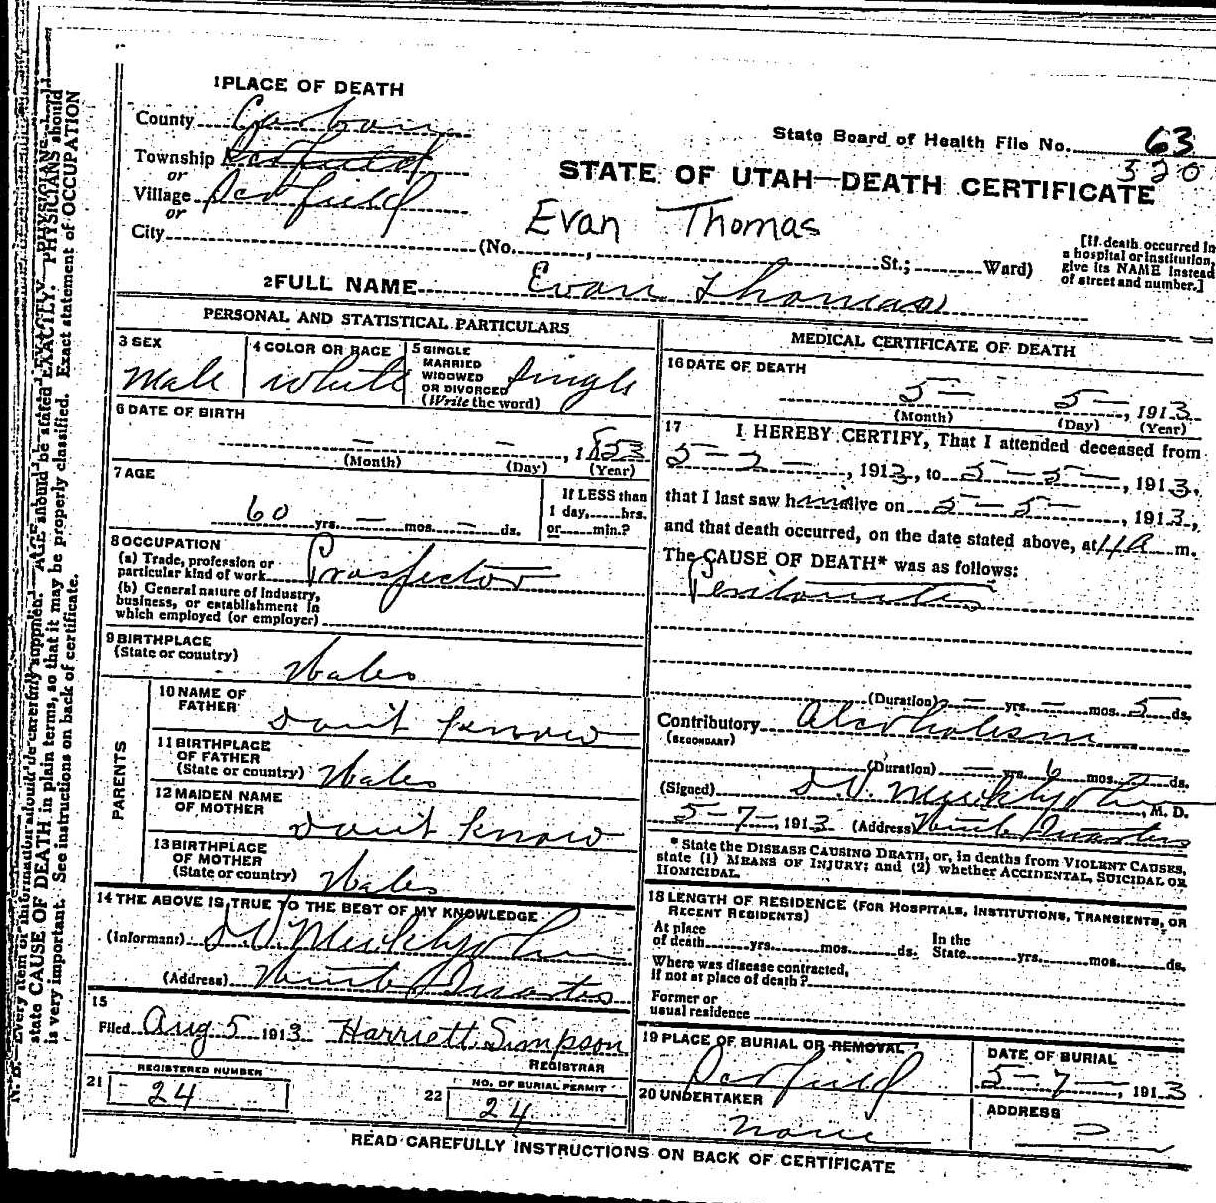 1 PLACE OF DEATH
County Carbon
State Board of Health File No. 63
320
Township
or
Village
or
City
STATE OF UTAH—DEATH CERTIFICATE
Evan Thomas
(No. , St.; Ward)
[If death occurred in
a hospital or institution,
give its NAME instead
of street and number.]
2 FULL NAME Evan Thomas
PERSONAL AND STATISTICAL PARTICULARS
3 SEX
Male
4 COLOR OR RACE
White
5 SINGLE
MARRIED
WIDOWED
OR DIVORCED
(Write the word)
Single
6 DATE OF BIRTH
— — , 1853
(Month) (Day) (Year)
7 AGE
60 yrs. — mos. — ds.
If LESS than
1 day, hrs.
or min.?
8 OCCUPATION
(a) Trade, profession or
particular kind of work Prospector
(b) General nature of industry,
business, or establishment in
which employed (or employer)
9 BIRTHPLACE
(State or country)
Wales
PARENTS
10 NAME OF
FATHER
Don't know
11 BIRTHPLACE
OF FATHER
(State or country) Wales
12 MAIDEN NAME
OF MOTHER
Don't know
13 BIRTHPLACE
OF MOTHER
(State or country) Wales
14 THE ABOVE IS TRUE TO THE BEST OF MY KNOWLEDGE
(Informant)
(Address) Winter Quarters
15
Filed Aug 5 1913 Harriett Simpson
REGISTRAR
21 REGISTERED NUMBER
24
22 NO. OF BURIAL PERMIT
24
MEDICAL CERTIFICATE OF DEATH
16 DATE OF DEATH
5 — 5 — , 1913
(Month) (Day) (Year)
17 I HEREBY CERTIFY, That I attended deceased from
5-2-, 1913, to 5-5-, 1913,
that I last saw him alive on 5-5-, 1913,
and that death occurred, on the date stated above, at m.
The CAUSE OF DEATH* was as follows:
Peritonitis
(Duration) — yrs. — mos. 5 ds.
Contributory Alcoholism
(SECONDARY)
(Duration) — yrs. 6 mos. — ds.
(Signed) M. D.
5-7-, 1913 (Address) Winter Quarters
* State the DISEASE CAUSING DEATH, or, in deaths from VIOLENT CAUSES,
state (1) MEANS OF INJURY; and (2) whether ACCIDENTAL, SUICIDAL OR
HOMICIDAL.
18 LENGTH OF RESIDENCE (FOR HOSPITALS, INSTITUTIONS, TRANSIENTS, OR
RECENT RESIDENTS)
At place
of death yrs. mos. ds.
In the
State yrs. mos. ds.
Where was disease contracted,
if not at place of death?
Former or
usual residence
19 PLACE OF BURIAL OR REMOVAL
DATE OF BURIAL
5-7-, 1913
20 UNDERTAKER
None
ADDRESS
READ CAREFULLY INSTRUCTIONS ON BACK OF CERTIFICATE
N. B.—Every item of information should be carefully supplied. AGE should be stated EXACTLY. PHYSICIANS should
state CAUSE OF DEATH in plain terms, so that it may be properly classified. Exact statement of OCCUPATION
is very important. See instructions on back of certificate.